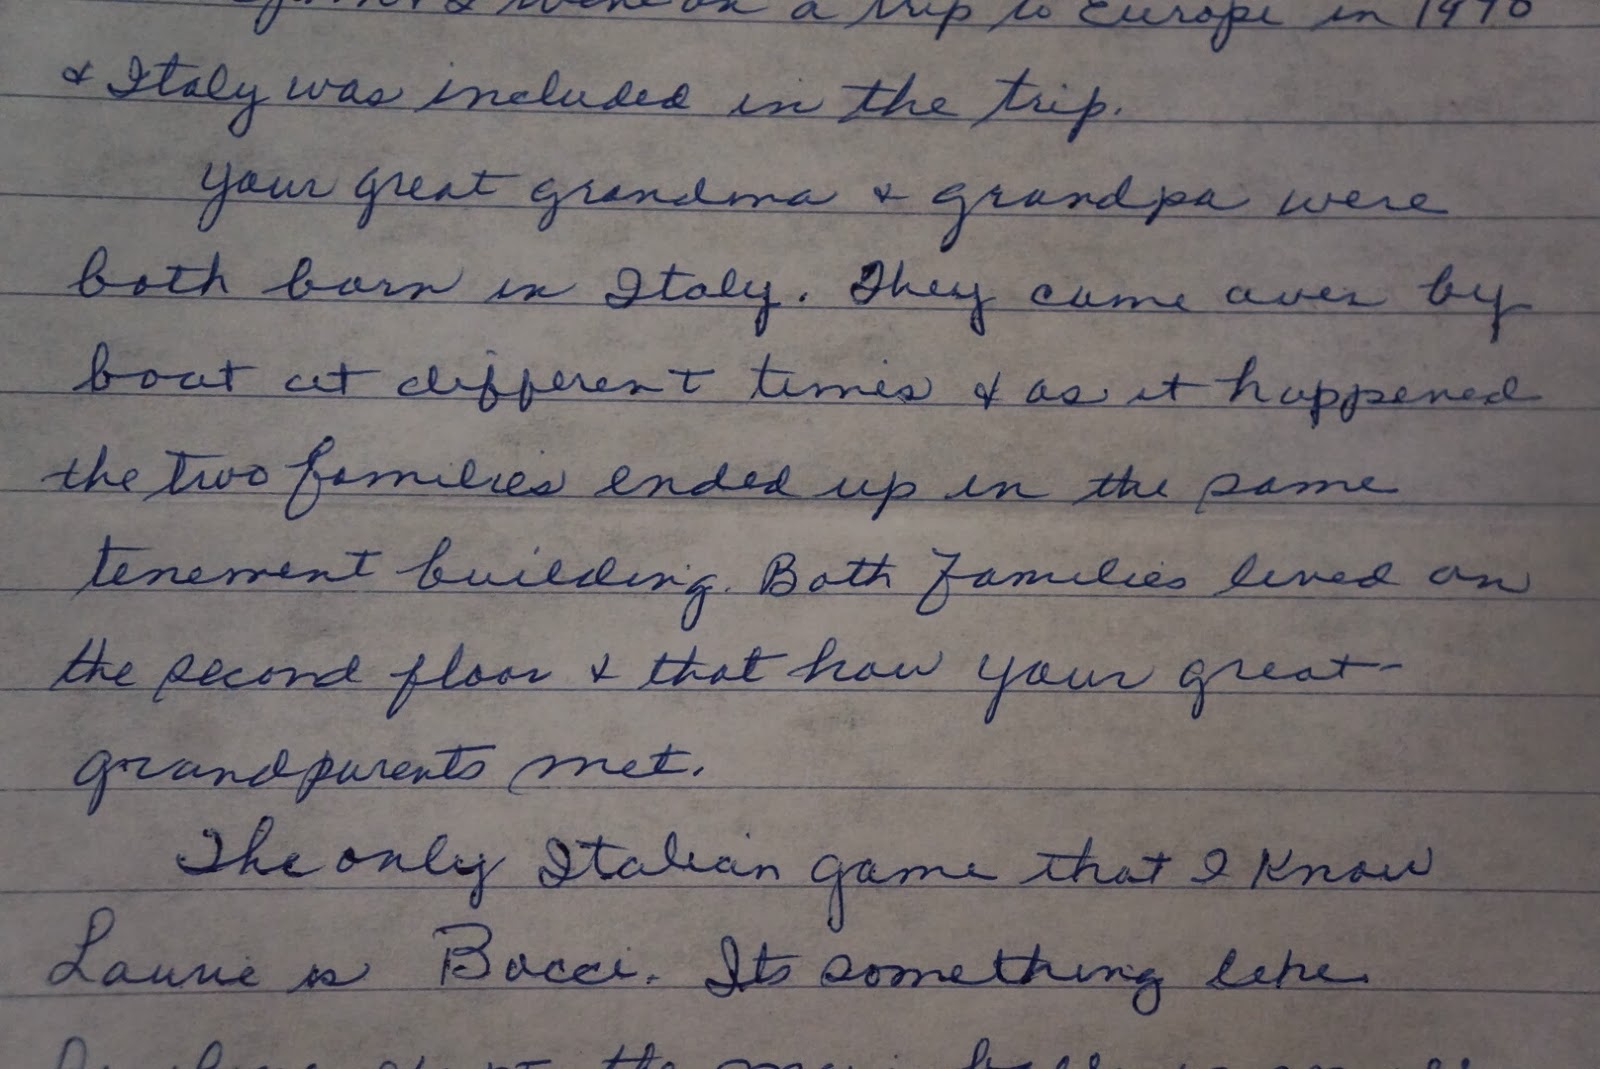 went on a trip to Europe in 1970
& Italy was included in the trip.
your great grandma & grandpa were
both born in Italy. They came over by
boat at different times & as it happened
the two families ended up in the same
tenement building. Both families lived on
the second floor & that how your great-
grandparents met.
The only Italian game that I know
Laurie is Bocci. Its something like
the